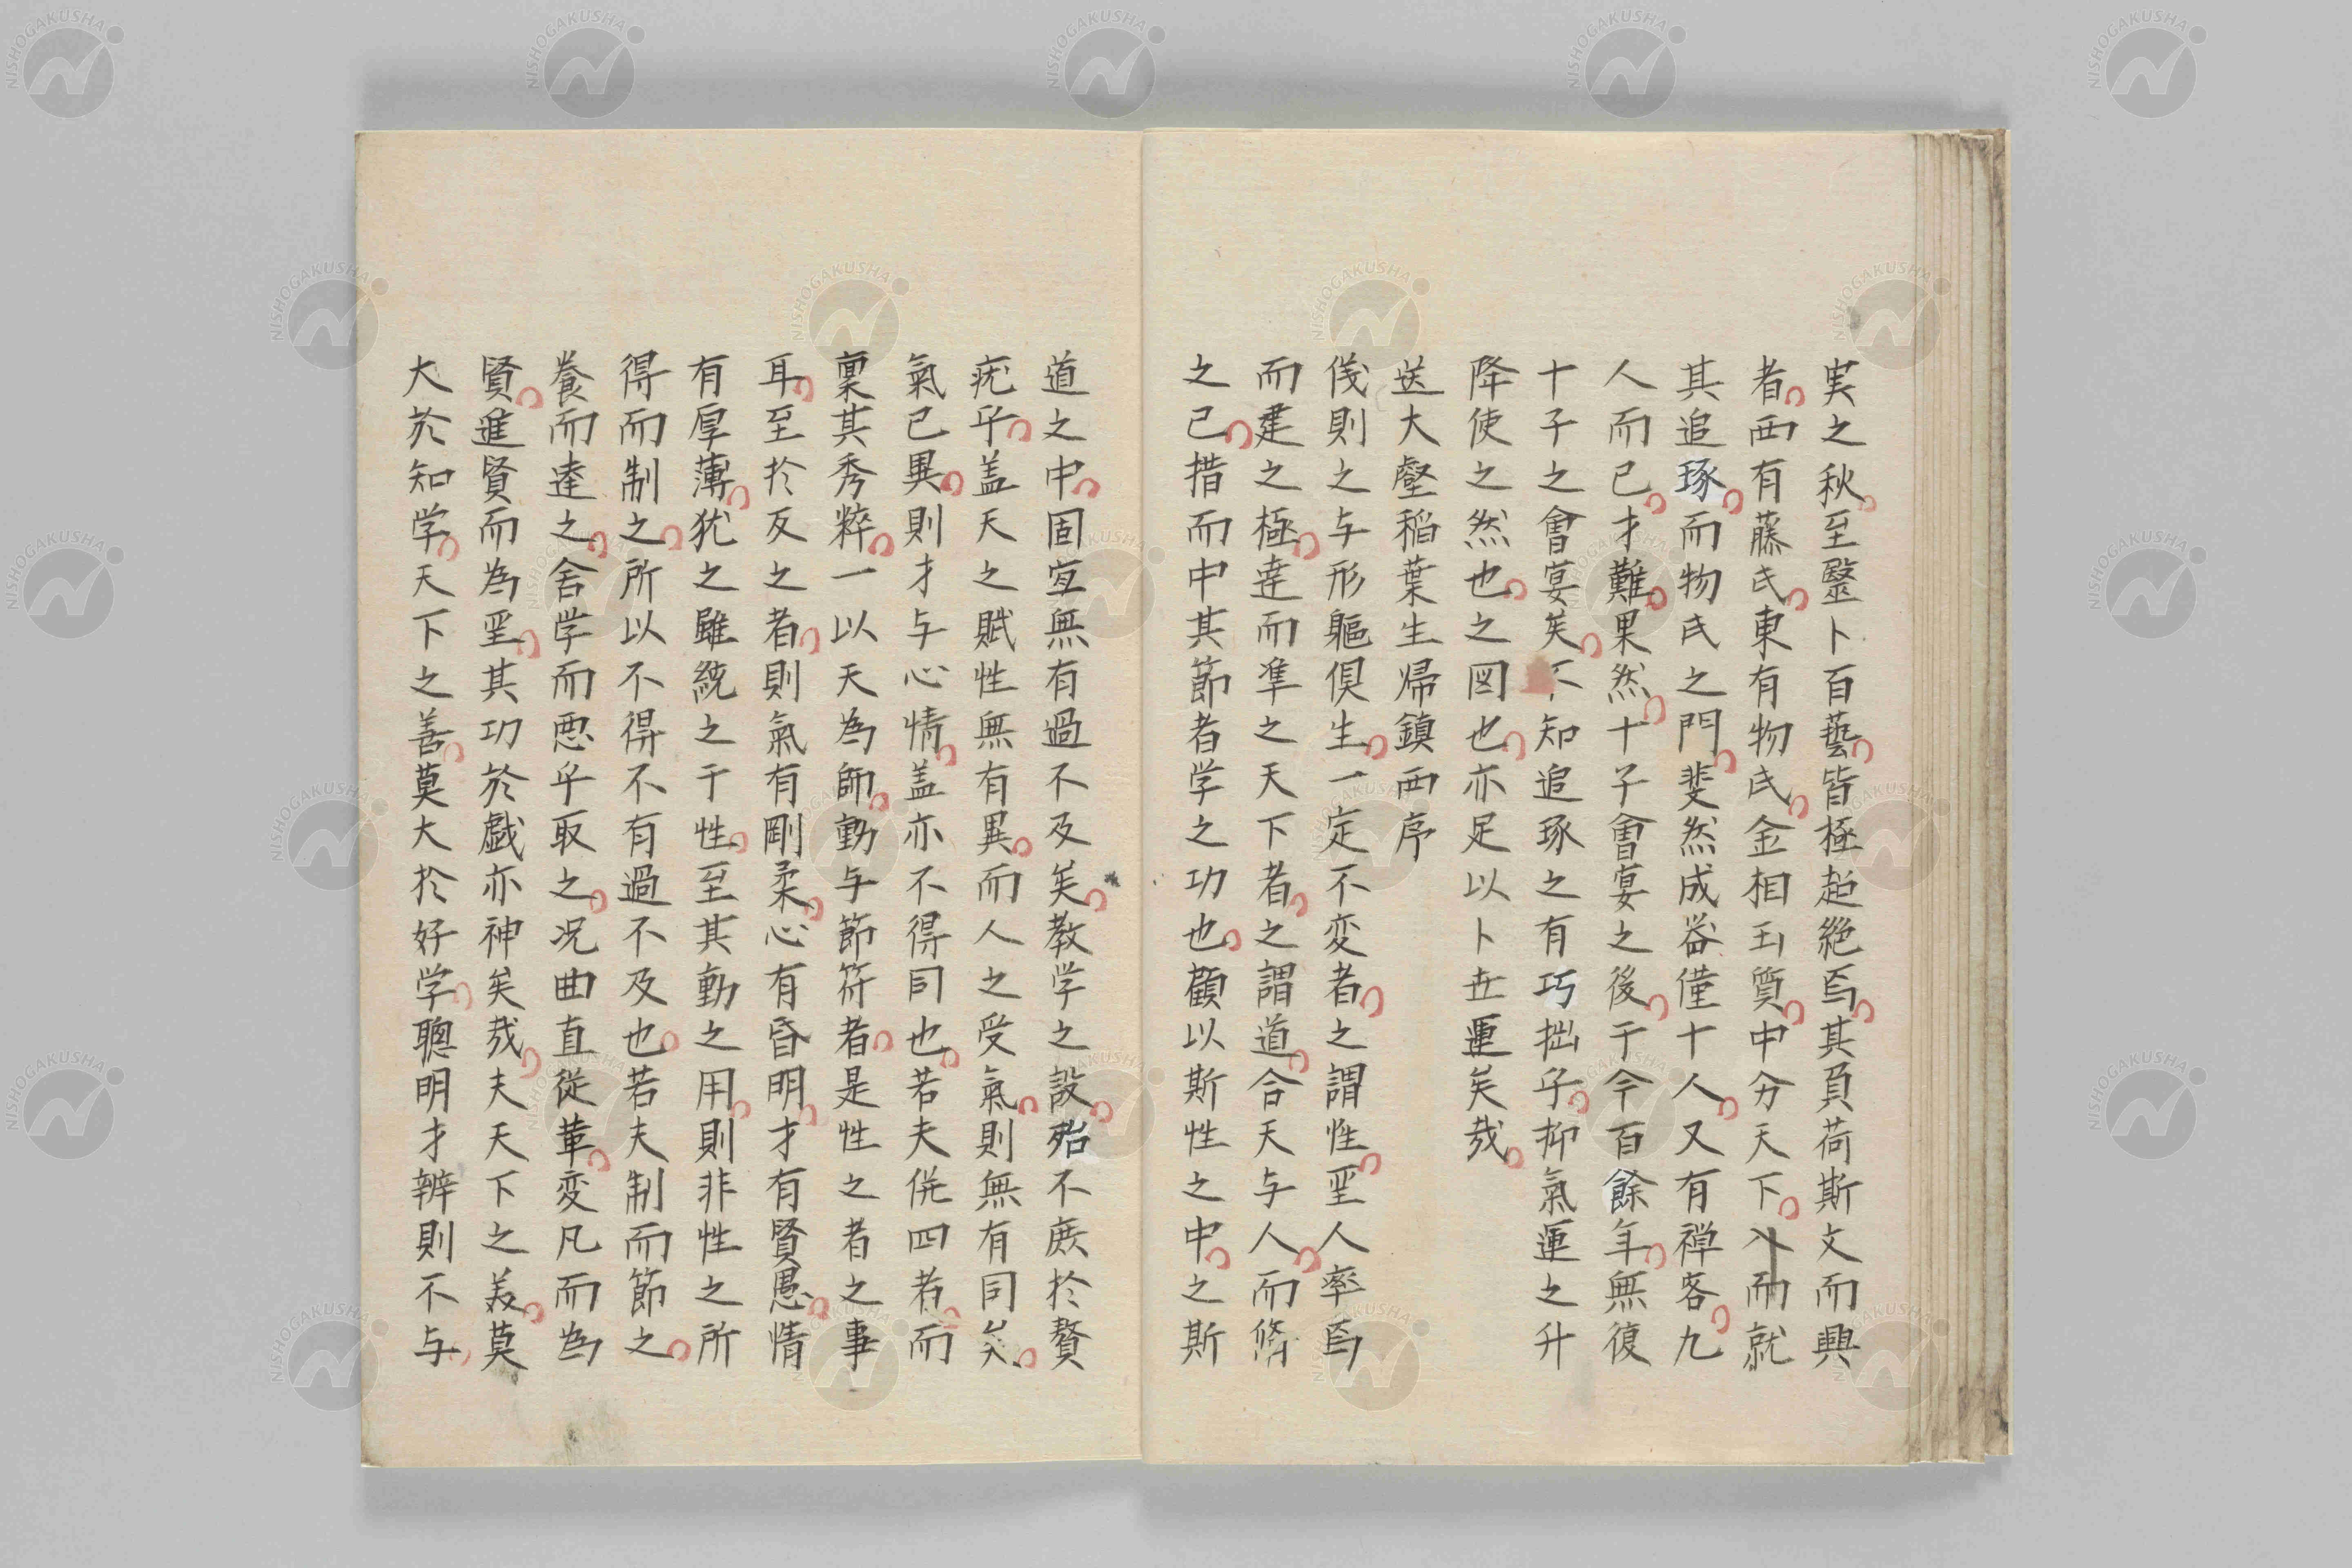 実之秋至毉卜百藝皆極超絶焉其負荷斯文而興
者西有藤氏東有物氏金相玉質中分天下人而就
其追琢而物氏之門斐然成器僅十人又有禅客九
人而已才難果然十子會宴之後于今百餘年無復
十子之會宴矣不知追琢之有巧拙乎抑氣運之升
降使之然也之図也亦足以卜世運矣哉
送大壑稲葉生帰鎮西序
儀則之与形軀倶生一定不変者之謂性聖人率焉
而建之極達而準之天下者之謂道合天与人而脩
之已措而中其節者学之功也顧以斯性之中之斯
道之中固宜無有過不及矣教学之設殆不庶於贅
疣乎盖天之賦性無有異而人之受氣則無有同矣
氣已異則才与心情盖亦不得同也若夫侊四者而
稟其秀粹一以天為師動与節符者是性之者之事
耳至於反之者則氣有剛柔心有昏明才有賢愚情
有厚薄犹之雖統之于性至其動之用則非性之所
得而制之所以不得不有過不及也若夫制而節之
養而達之舍学而悪乎取之况曲直從革変凡而為
賢進賢而為聖其功於戯亦神矣哉夫天下之美莫
大於知学天下之善莫大於好学聰明才辨則不与
NISHOGAKUSHA